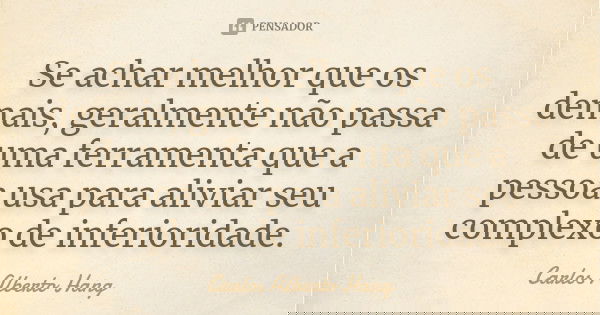 PENSADOR
Se achar melhor que os
demais, geralmente não passa
de uma ferramenta que a
pessoa usa para aliviar seu
complexo de inferioridade.
Carlos Alberto Hang